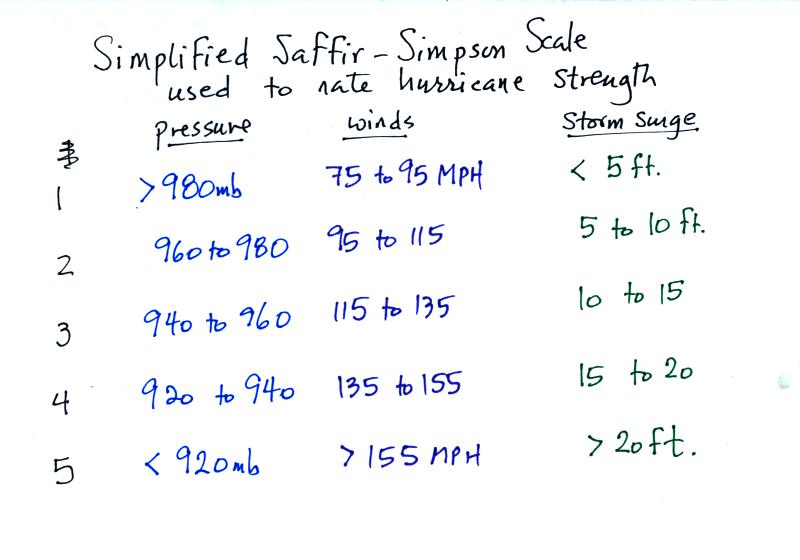 Simplified Saffir-Simpson Scale
used to rate hurricane strength
Pressure winds Storm Surge
1 >980mb 75 to 95 MPH < 5 ft.
2 960 to 980 95 to 115 5 to 10 ft.
3 940 to 960 115 to 135 10 to 15
4 920 to 940 135 to 155 15 to 20
5 < 920mb > 155 MPH > 20 ft.